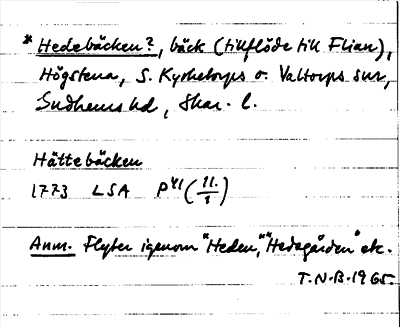 * Hedebäcken?, bäck (tillflöde till Flian),
Högstena, S. Kyrketorps o. Valtorps snr,
Gudhems hd, Skar. l.
Hättebäcken
1773 LSA P41 (11/1)
Anm. Flyter igenom "Heden", "Hedegården" etc.
T.N.B. 1965.